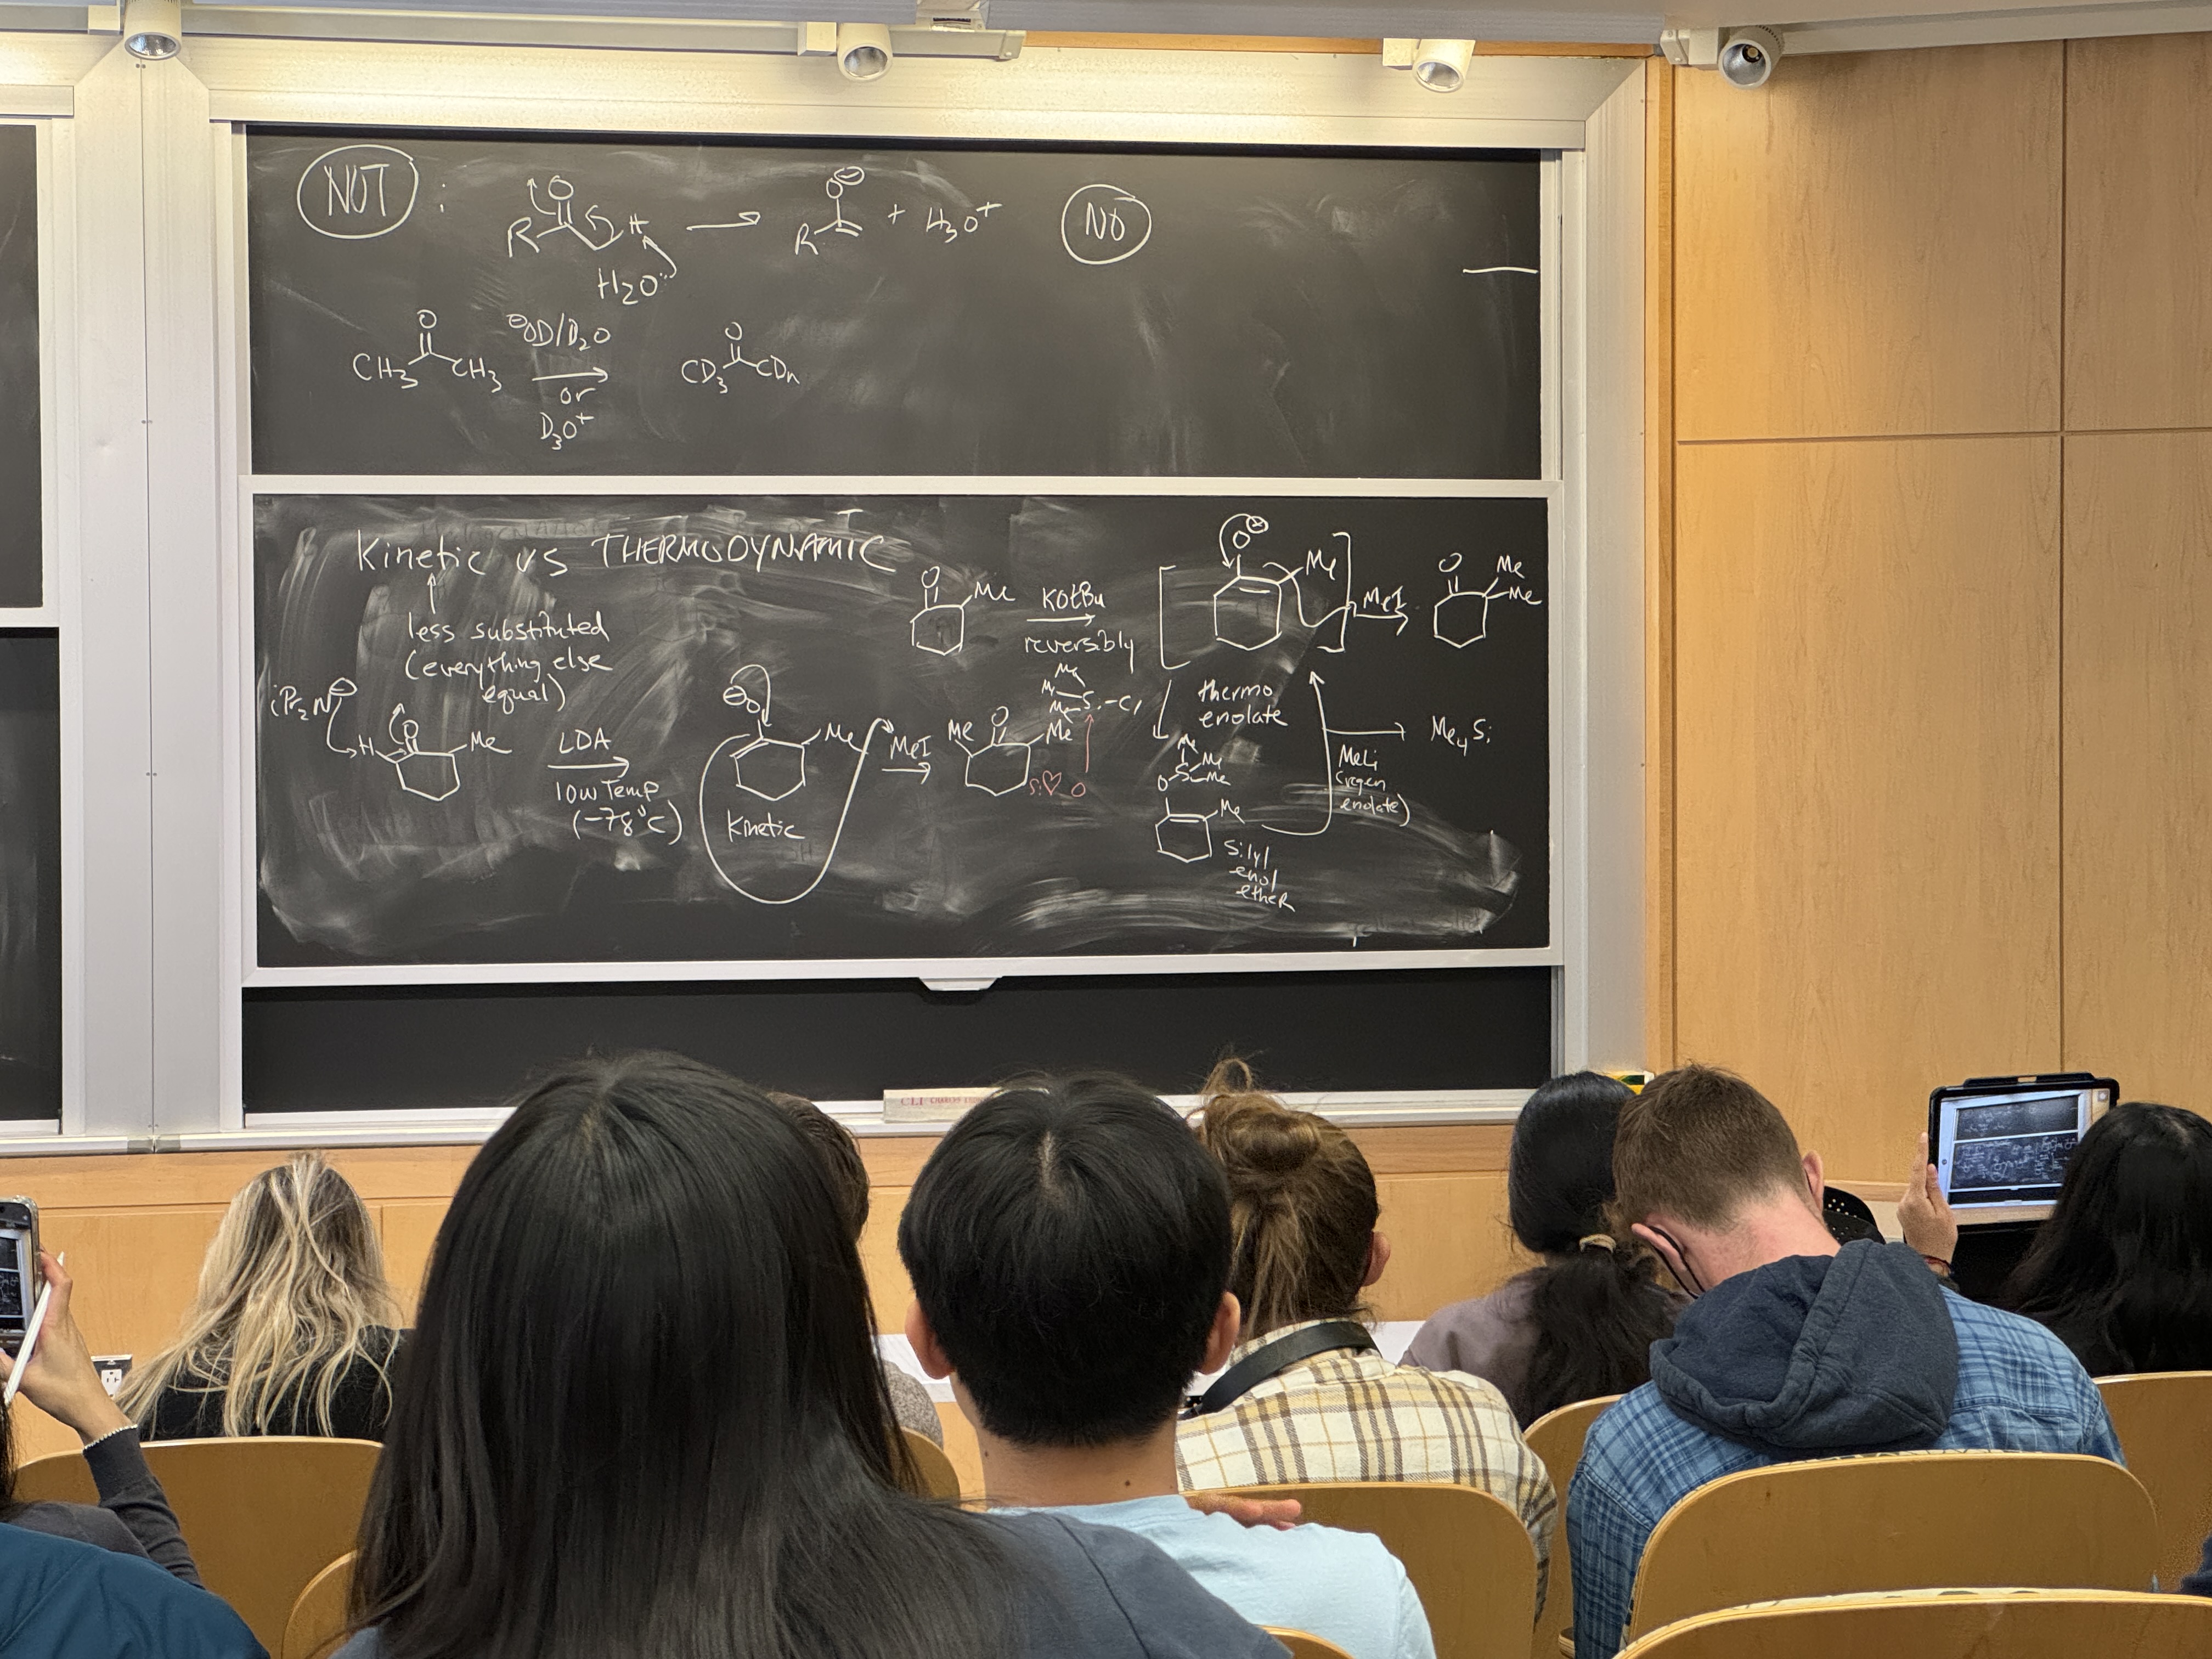 NOT :
O
R H
H2O:
O⊖
R
+ H3O+
NO
O
CH3 CH3
⊖OD/D2O
or
D3O+
O
CD3 CDn
Kinetic vs THERMODYNAMIC
less substituted
(everything else
equal)
iPr2N⊖
H
O
Me
LDA
low Temp
(-78°C)
⊖O
Me
Kinetic
MeI
Me
O
Me
Si♡O
O
Me
KOtBu
reversibly
Me
Me
Me
Si-Cl
O⊖
Me
MeI
O
Me
Me
thermo
enolate
Me
O Si Me
Me
Me
Silyl
enol
etheR
MeLi
(regen
enolate)
Me4Si